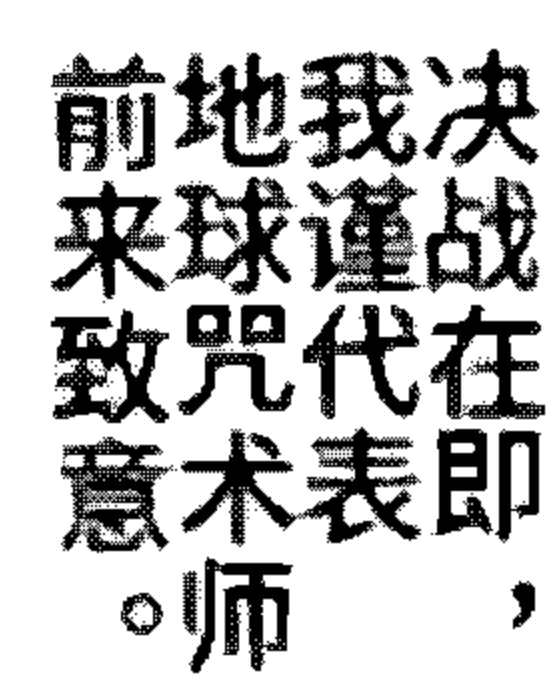 决战在即，
我谨代表
地球咒术师
前来致意。